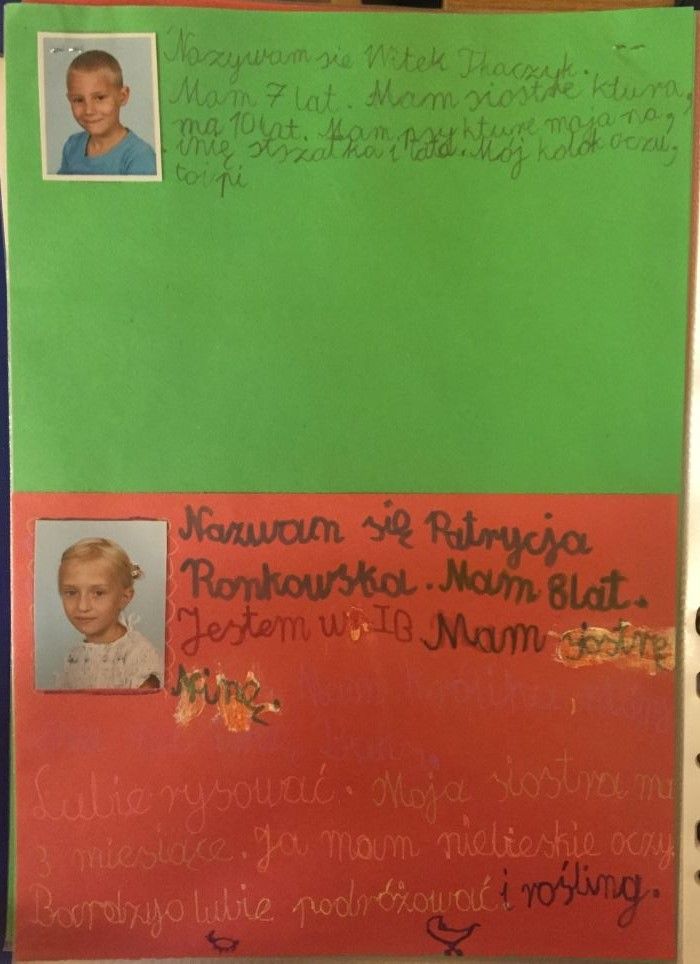 Nazywam sie Witek Tkaczyk.
Mam 7 lat. Mam siostre ktura
ma 10 lat. Mam psy kture maja na
imię i łata. Mój kolok oczu
to pi
Nazwam się Patrycja
Ronkowska. Mam 8 lat.
Jestem w IB Mam siostrę
Ninę. Mam
Lubie rysować. Moja siostra ma
3 miesiące. Ja mam niebieskie oczy.
Bardzyo lubię podróżować i rośling.